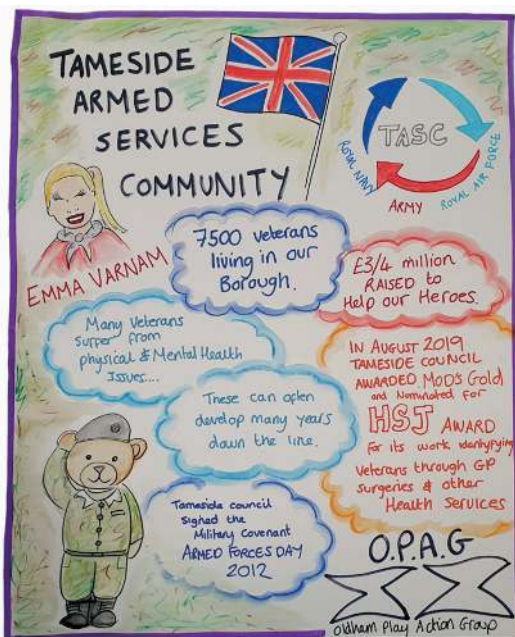 TAMESIDE
ARMED
SERVICES
COMMUNITY
TASC
ROYAL NAVY
ARMY
ROYAL AIR FORCE
EMMA VARNAM
7500 veterans
living in our
Borough.
£3/4 million
RAISED to
Help our Heroes.
Many Veterans
suffer from
physical & Mental Health
Issues....
These can often
develop many years
down the line.
IN AUGUST 2019
TAMESIDE COUNCIL
AWARDED MOD'S Gold
and Nominated for
HSJ AWARD
for its work identyfying
Veterans through GP
surgeries & other
Health Services
Tameside council
signed the
Military Covenant
ARMED FORCES DAY
2012
O.P.A.G
Oldham Play Action Group